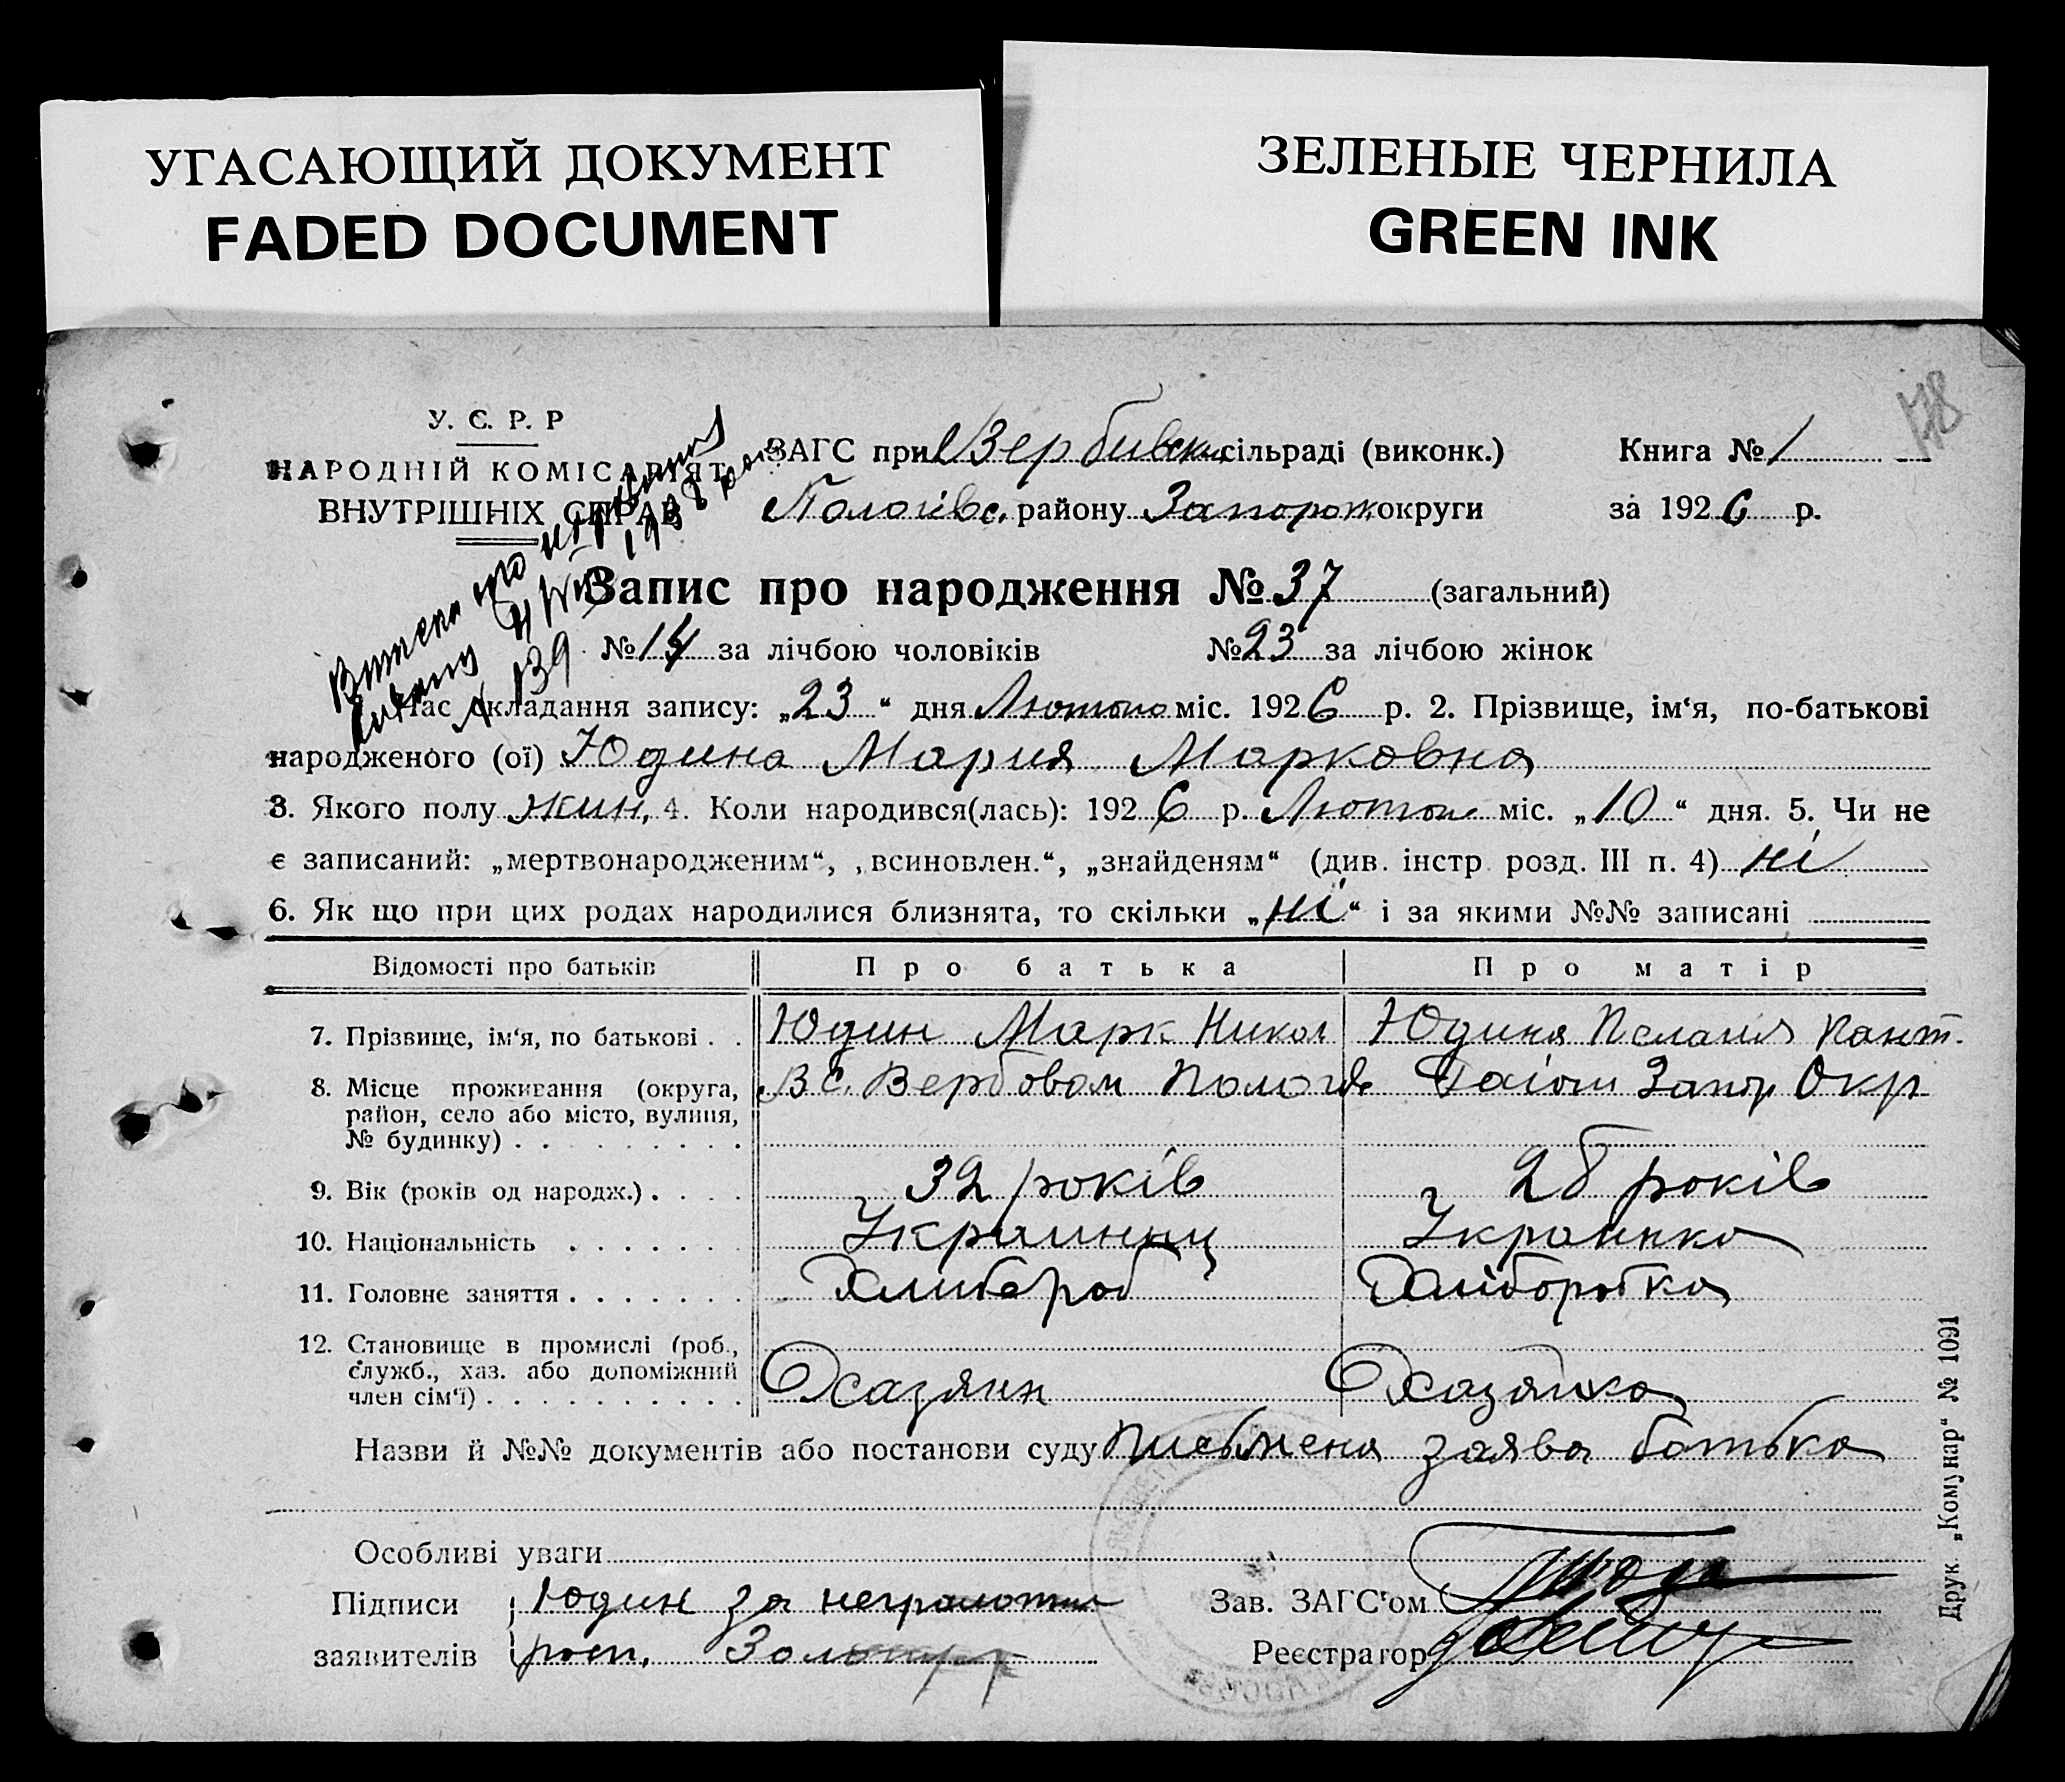 УГАСАЮЩИЙ ДОКУМЕНТ
FADED DOCUMENT
ЗЕЛЕНЫЕ ЧЕРНИЛА
GREEN INK
178
У. Є. Р. Р
НАРОДНІЙ КОМІСАРІЯТ
ВНУТРІШНІХ СПРАВ
ЗАГС при Вербивск. сільраді (виконк.) Книга № 1
Пологівс. району Запорож. округи за 1926 р.
Запис про народження № 37 (загальний)
№ 14 за лічбою чоловіків № 23 за лічбою жінок
№ 139
1938
Час складання запису: „23“ дня Лютого міс. 1926 р. 2. Прізвище, ім‘я, по-батькові
народженого (ої) Юдина Мария Марковна
3. Якого полу жин. 4. Коли народився(лась): 1926 р. Лютого міс. „10“ дня. 5. Чи не
є записаний: „мертвонародженим“, „всиновлен.“, „знайденям“ (див. інстр розд. III п. 4) ні
6. Як що при цих родах народилися близнята, то скільки „ні“ і за якими №№ записані
Відомості про батьків Про батька Про матір
7. Прізвище, ім‘я, по батькові . . Юдин Марк Никол Юдина Пелагия Конт.
8. Місце проживання (округа, В с. Вербовом Пологів Раіон Запор Окр
район, село або місто, вулиця,
№ будинку)
9. Вік (років од народж.) 32 років 28 років
10. Національність Украинец Украинка
11. Головне заняття Хлибороб Хліборобка
12. Становище в промислі (роб.,
служб., хаз. або допоміжний
член сім‘ї) Хазяин Хазяйка
Назви й №№ документів або постанови суду Письмена заява батька
Особливі уваги
Підписи Юдин за неграмотн
заявителів росп.
Зав. ЗАГС‘ом
Реєстратор
Друк „Комунар“ № 1091